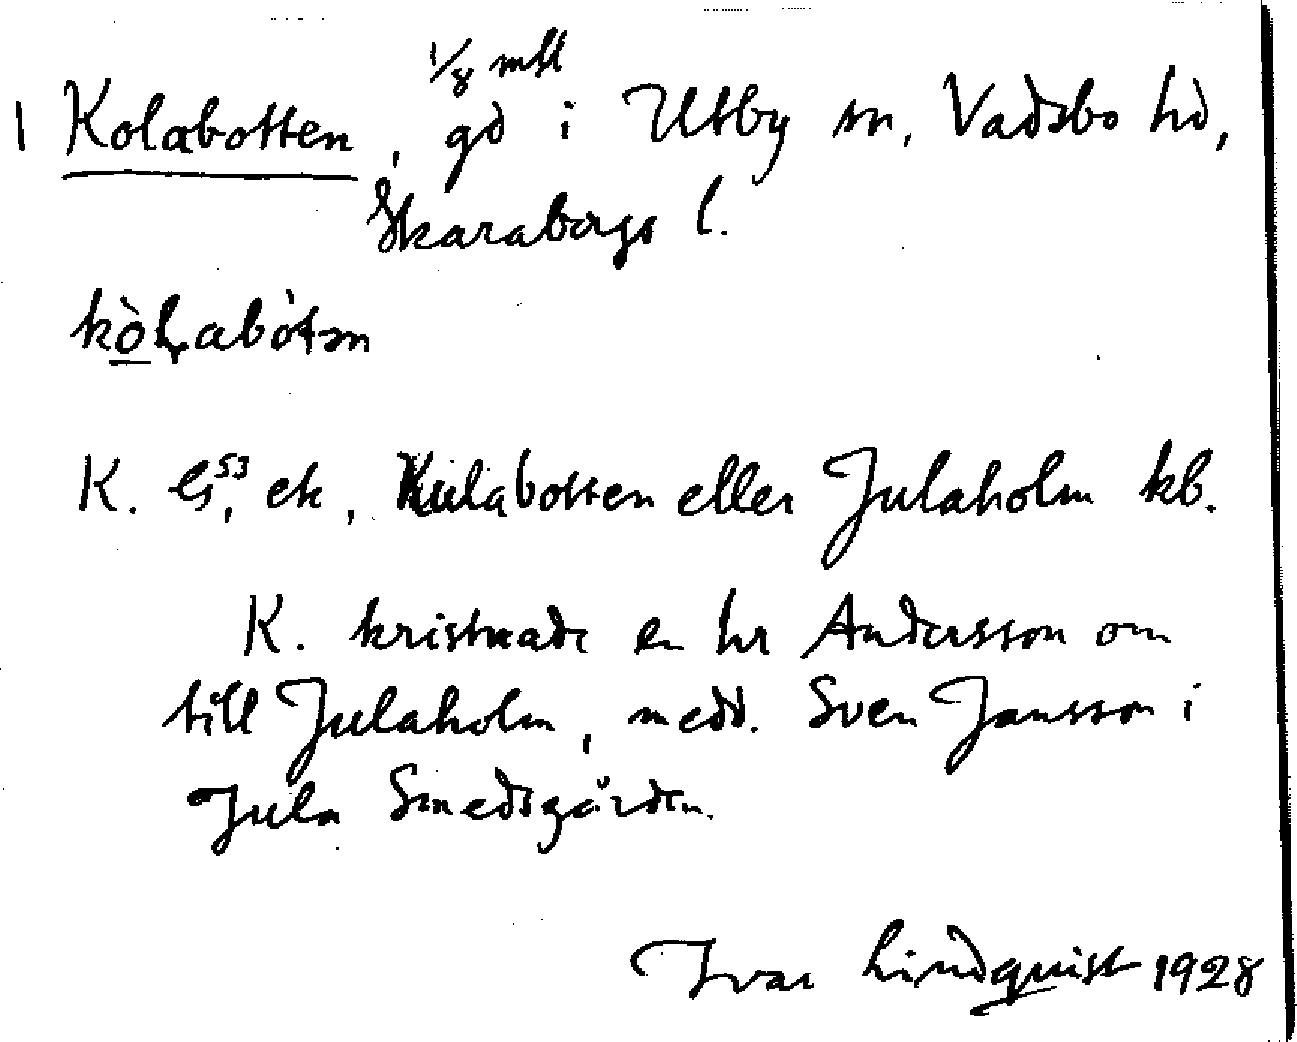 1/8 mtl
1 Kolabotten, gd i Utby sn, Vadsbo hd,
Skaraborgs l.
K. G53, ek, Kulabotten eller Julaholm kb.
K. kristnade en hr Andersson om
till Julaholm, medd. Sven Jansson i
Jula Smedsgården.
Ivar Lindquist 1928